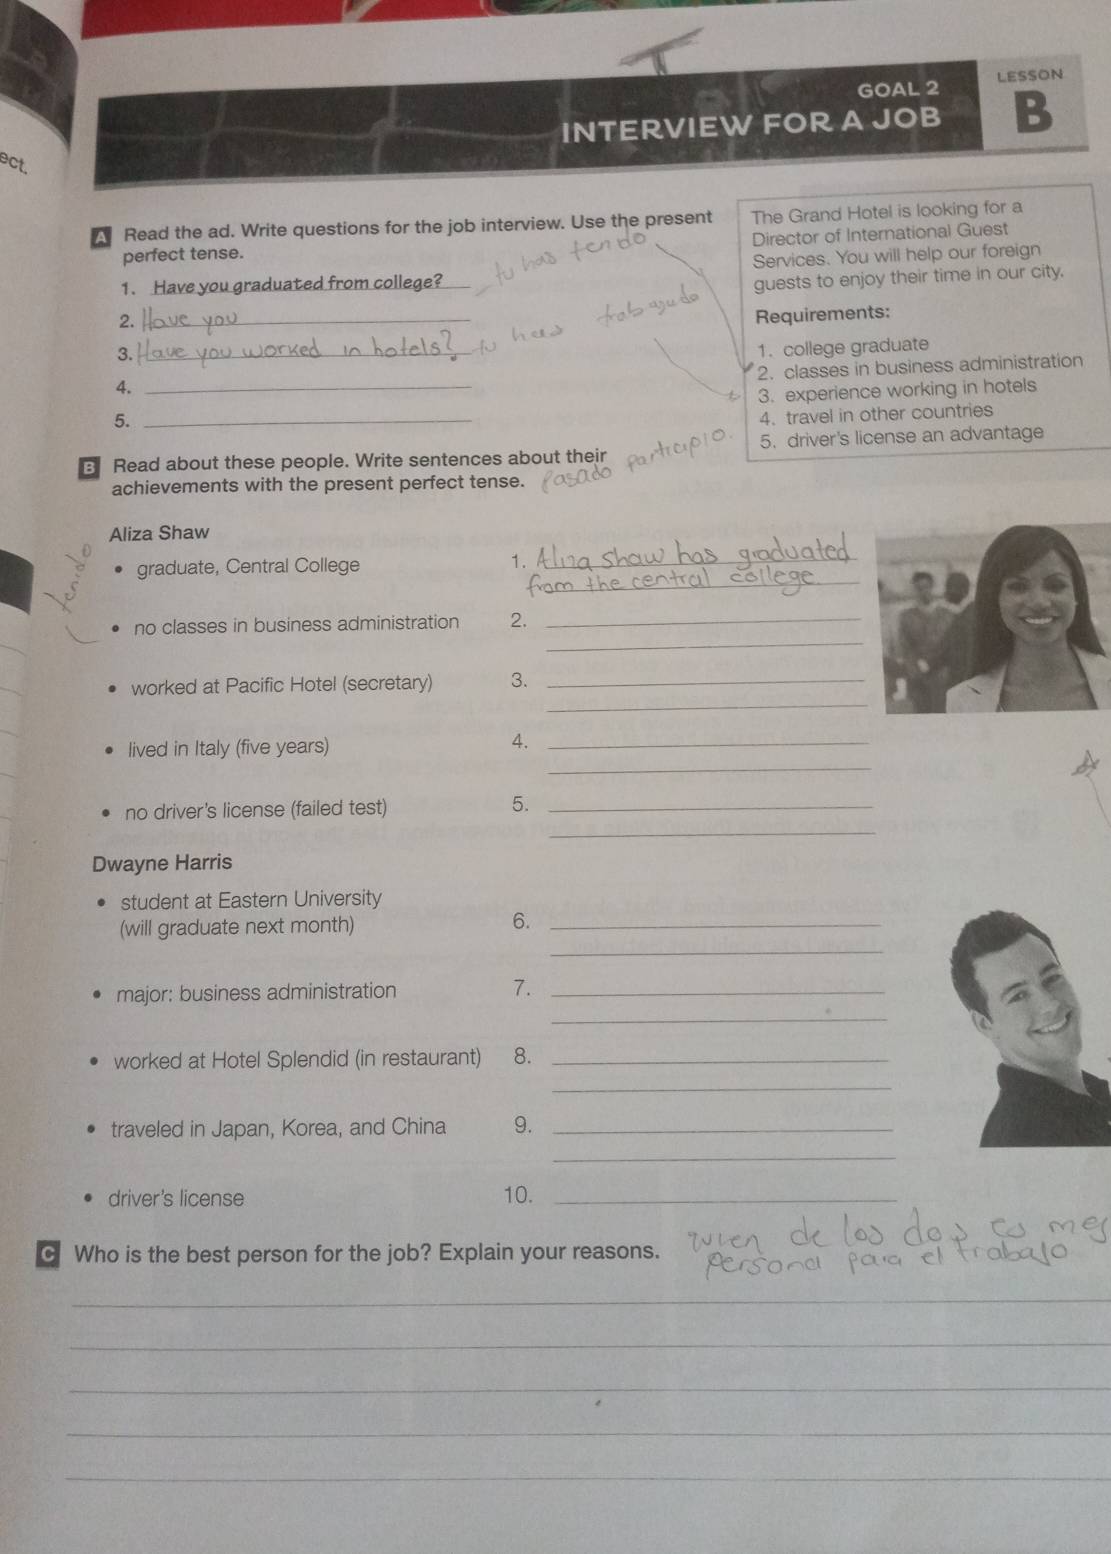 ect.
GOAL 2
INTERVIEW FOR A JOB
LESSON
B
A Read the ad. Write questions for the job interview. Use the present
perfect tense.
1. Have you graduated from college?
tu has tendo
2. Have you
3. Have you worked in hotels?
tu has trabagado
4.
5.
The Grand Hotel is looking for a
Director of International Guest
Services. You will help our foreign
guests to enjoy their time in our city.
Requirements:
1. college graduate
2. classes in business administration
3. experience working in hotels
4. travel in other countries
5. driver's license an advantage
B Read about these people. Write sentences about their
achievements with the present perfect tense.
Pasado participio.
Aliza Shaw
tenido
• graduate, Central College
1. Aliza Shaw has graduated
from the central college
• no classes in business administration 2.
• worked at Pacific Hotel (secretary) 3.
• lived in Italy (five years) 4.
• no driver's license (failed test) 5.
Dwayne Harris
• student at Eastern University
(will graduate next month) 6.
• major: business administration 7.
• worked at Hotel Splendid (in restaurant) 8.
• traveled in Japan, Korea, and China 9.
• driver's license 10.
C Who is the best person for the job? Explain your reasons.
de los dos es mej
persona para el trabajo